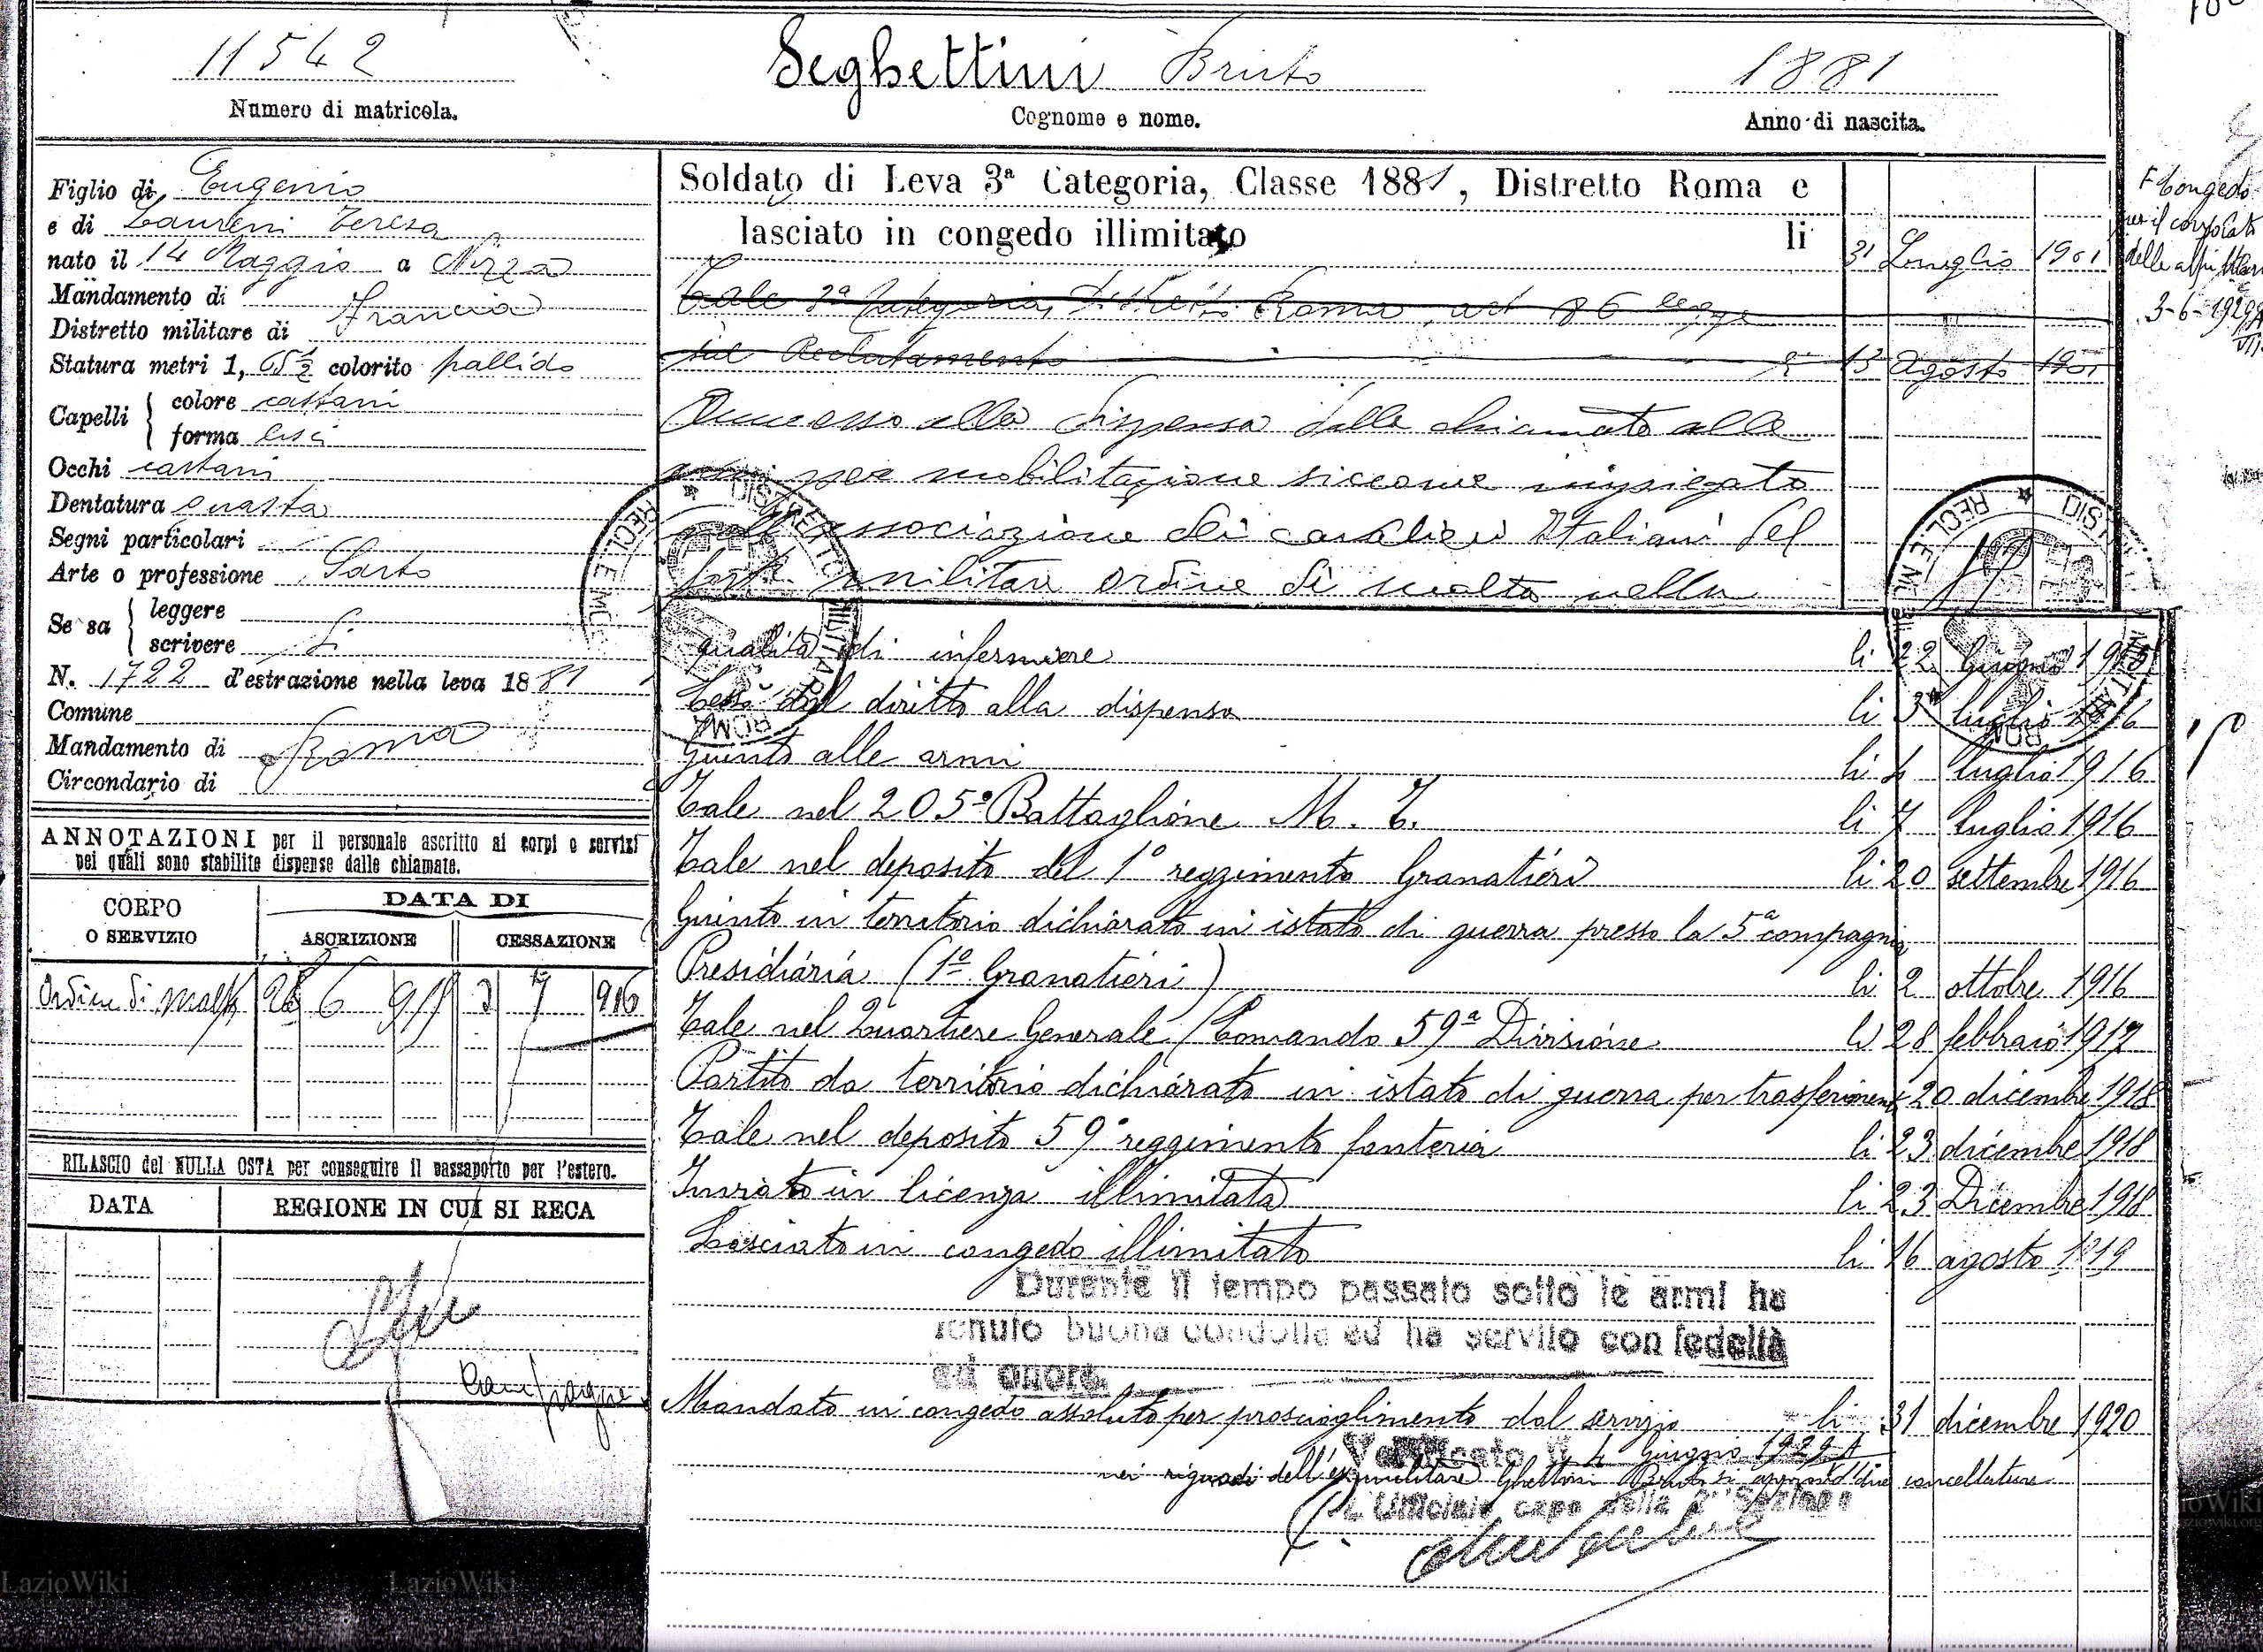 11542
Numero di matricola.
Seghettini Bruto
Cognome e nome.
1881
Anno di nascita.
Figlio di Eugenio
e di Laureni Teresa
nato il 14 Maggio a Nizza
Mandamento di
Francia
Distretto militare di
Statura metri 1, 65½ colorito pallido
Capelli { colore castani
forma lisci
Occhi castani
Dentatura guasta
Segni particolari
Arte o professione Sarto
Se sa { leggere
scrivere Si
N. 1722 d'estrazione nella leva 1881
Comune
Mandamento di Roma
Circondario di
ANNOTAZIONI per il personale ascritto ai corpi o servizi
pei quali sono stabilite dispense dalle chiamate.
CORPO O SERVIZIO
DATA DI
ASCRIZIONE CESSAZIONE
Ordine di Malta 6 3 7 916
RILASCIO del NULLA OSTA per conseguire il passaporto per l'estero.
DATA REGIONE IN CUI SI RECA
Campagne
Soldato di Leva 3ª Categoria, Classe 1881, Distretto Roma e
lasciato in congedo illimitato li 31 Luglio 1901
Tale 2ª Categoria, Distretto Roma, art 86 legge
sul Reclutamento 13 agosto 1901
Ammesso alla dispensa dalla chiamata alle
armi per mobilitazione siccome impiegato
associazione dei cavalieri Italiani del
militare ordine di malta nella
qualità di infermiere li 22 Giugno 1915
Cessò dal diritto alla dispensa li 3 luglio 1916
Giunto alle armi li 4 luglio 1916
Tale nel 205º Battaglione M. T. li 7 luglio 1916
Tale nel deposito del 1º reggimento Granatieri li 20 settembre 1916
Giunto in territorio dichiarato in istato di guerra presso la 5ª compagnia
Presidiaria (1º Granatieri) li 2 ottobre 1916
Tale nel Quartiere Generale (Comando 59ª Divisione li 28 febbraio 1917
Partito da territorio dichiarato in istato di guerra per trasferimento 20 dicembre 1918
Tale nel deposito 59º reggimento fanteria li 23 dicembre 1918
Inviato in licenza illimitata li 23 Dicembre 1918
Lasciato in congedo illimitato li 16 agosto 1919
Durante il tempo passato sotto le armi ha
tenuto buona condotta ed ha servito con fedeltà
ed onore.
Mandato in congedo assoluto per proscioglimento dal servizio li 31 dicembre 1920
Verificato il 4 Giugno 1929
nei riguardi dell'ex militare Ghettini Bruto si approvano due cancellature
L'Ufficiale capo della 2ª Sezione
Congedo
per il comp
delle
3-6-1929
DISTRETTO MILITARE
ROMA
LazioWiki
LazioWiki